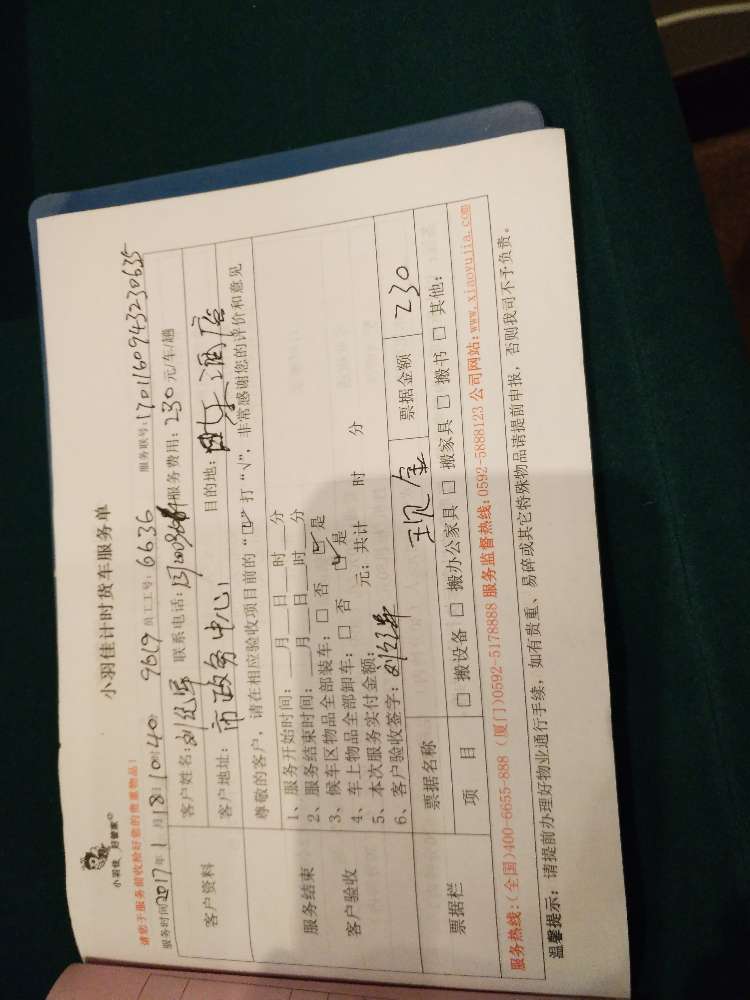 小羽佳 好管家
小羽佳计时货车服务单
请您于服务前收捡好您的贵重物品!
服务时间 2017年1月18日10时40 9619 员工工号: 6636 服务联号: 1701160943230635
客户资料
客户姓名: 联系电话: 服务费用: 230元/车/趟
客户地址: 市政务中心 目的地: 酒店
服务结束
客户验收
尊敬的客户,请在相应验收项目前的“☑”打“√”,非常感谢您的评价和意见
1、服务开始时间: 月 日 时 分
2、服务结束时间: 月 日 时 分
3、候车区物品全部装车: □ 否 ☑ 是
4、车上物品全部卸车: □ 否 ☑ 是
5、本次服务实付金额: 元; 共计 时 分
6、客户验收签字:
票据栏
票据名称 现金 票据金额 230
项 目 □ 搬设备 □ 搬办公家具 □ 搬家具 □ 搬书 □ 其他:
服务热线:(全国)400-6655-888 (厦门)0592-5178888 服务监督热线:0592-5888123 公司网站:www.xiaoyujia.com
温馨提示: 请提前办理好物业通行手续, 如有贵重、易碎或其它特殊物品请提前申报, 否则我司不予负责。